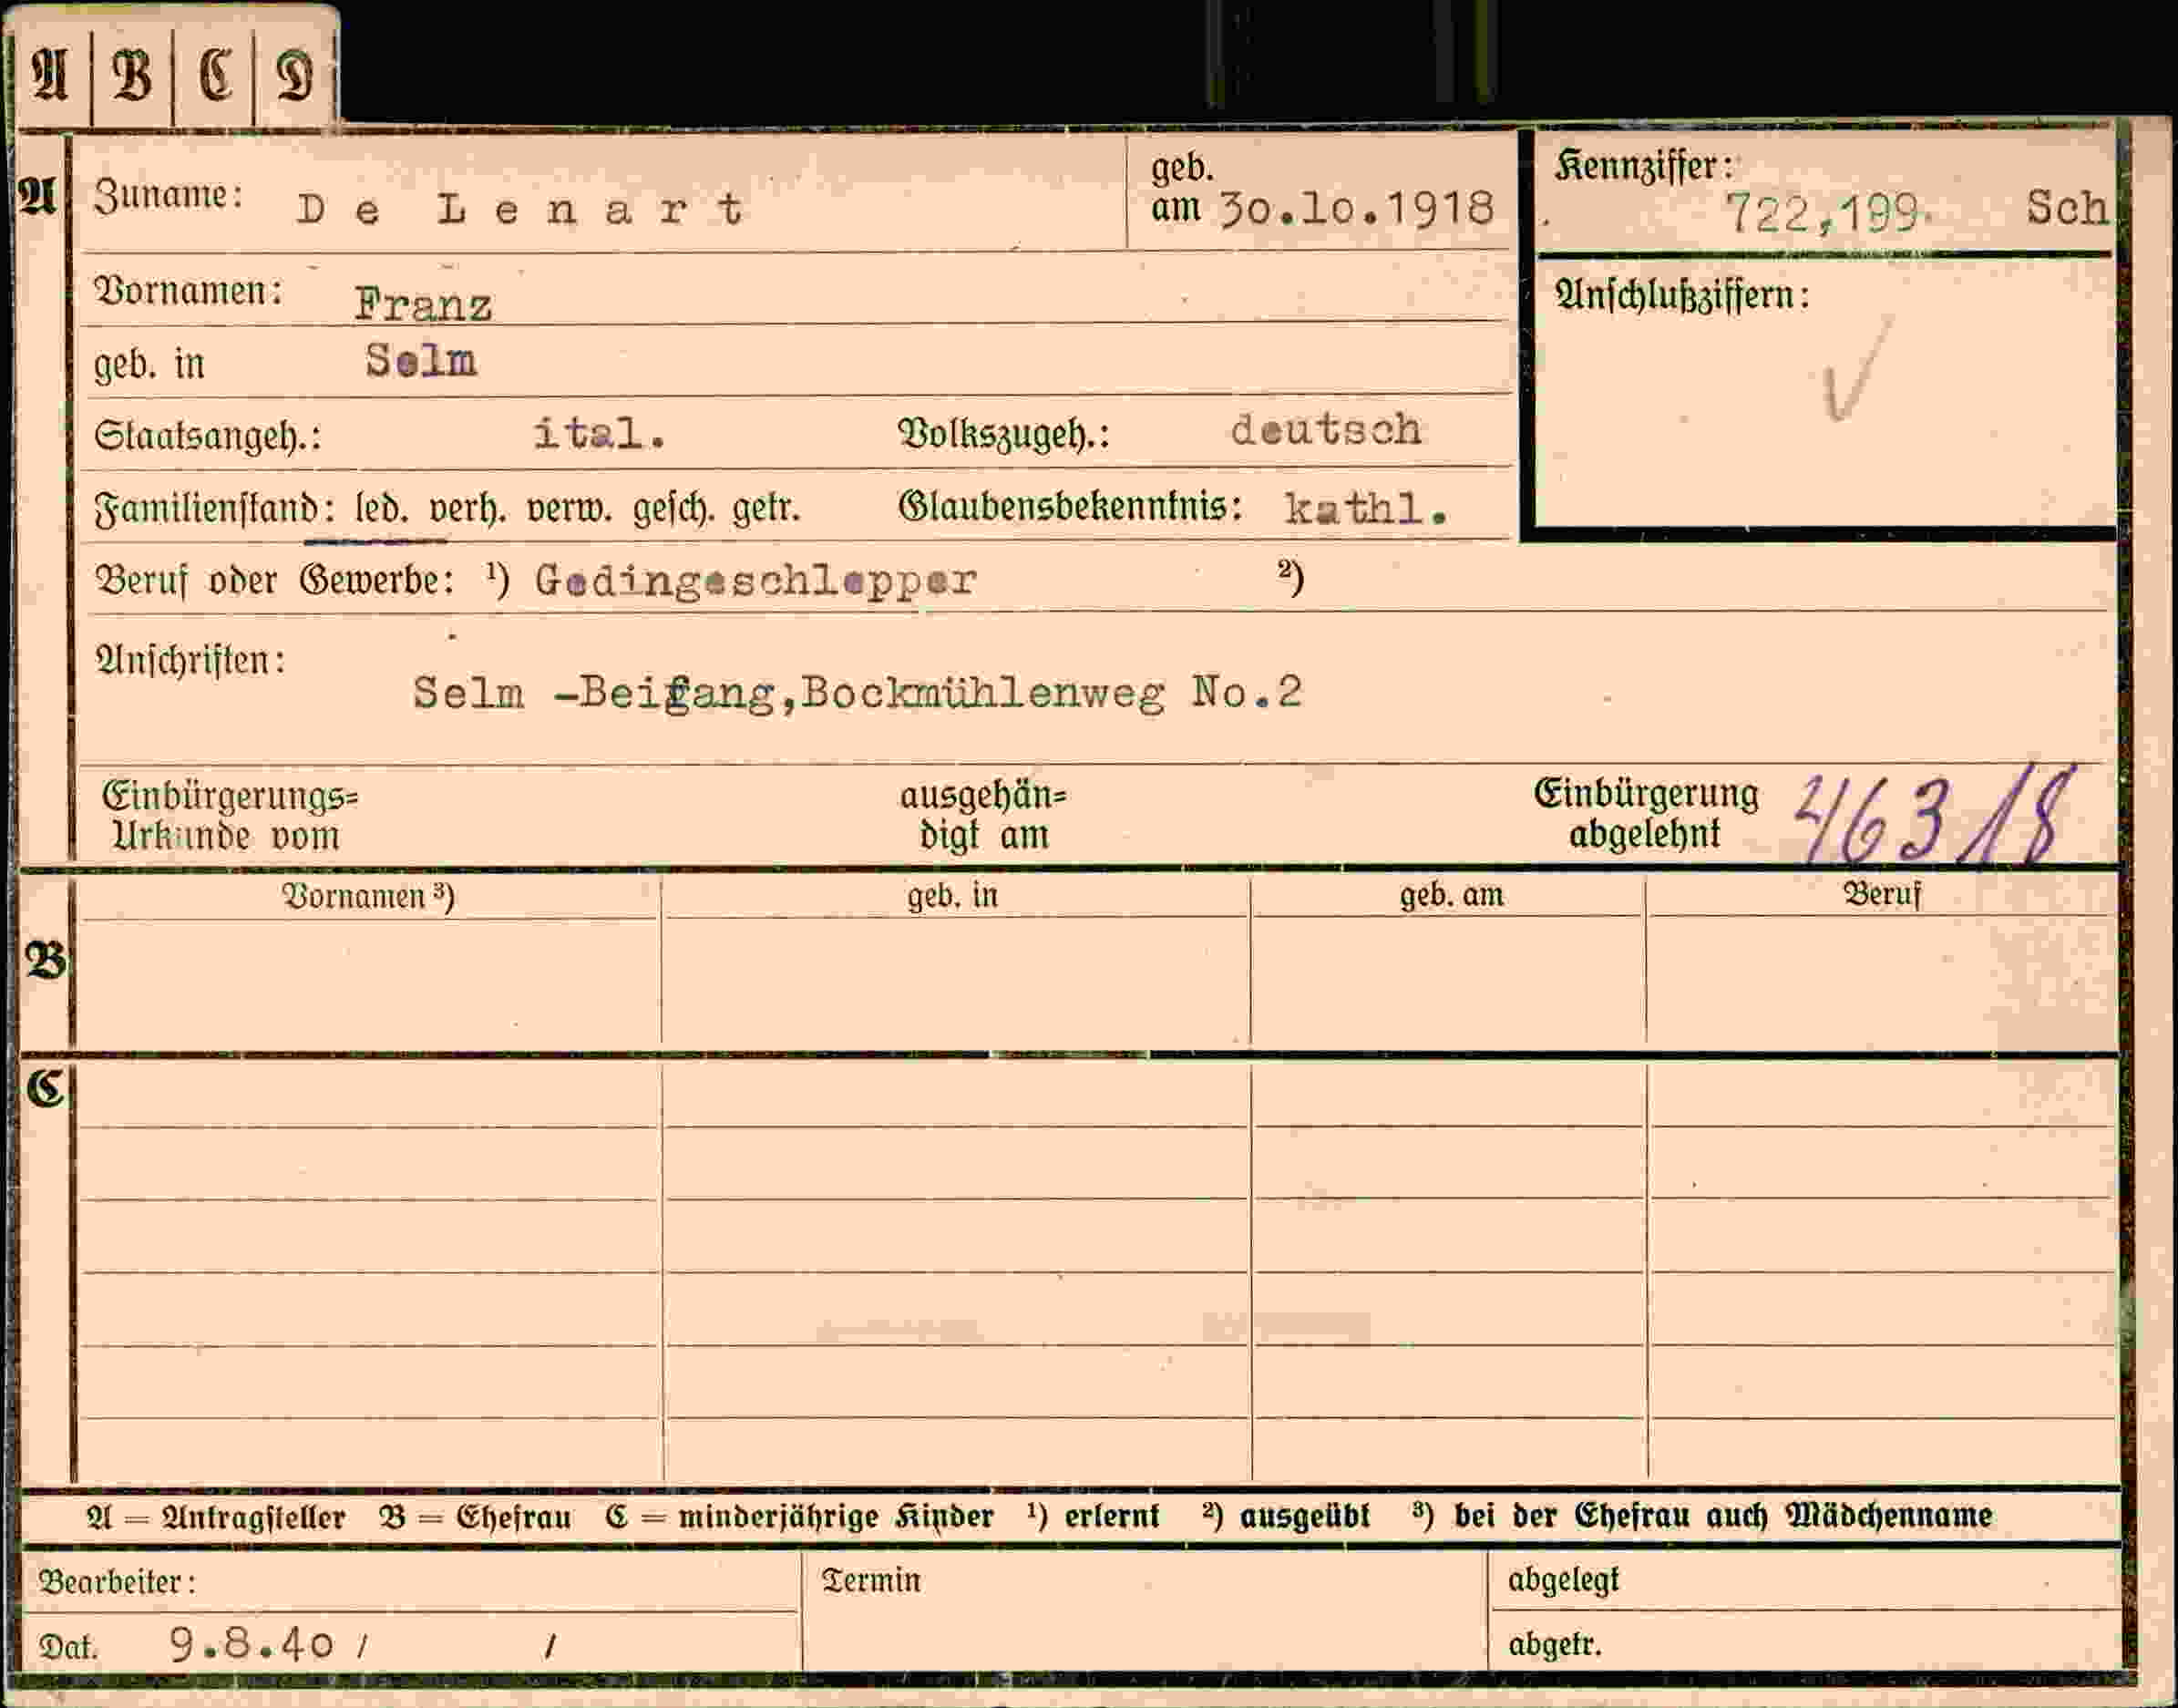 A B C D
A Zuname: De Lenart geb. am 30.10.1918 Kennziffer: 722,199. Sch
Vornamen: Franz Anschlußziffern:
geb. in Selm
Staatsangeh.: ital. Volkszugeh.: deutsch
Familienstand: led. verh. verw. gesch. getr. Glaubensbekenntnis: kathl.
Beruf oder Gewerbe: ¹) Gedingeschlepper ²)
Anschriften:
Selm -Beifang,Bockmühlenweg No.2
Einbürgerungs= ausgehän= Einbürgerung 46318
Urkunde vom digt am abgelehnt
Vornamen ³) geb. in geb. am Beruf
B
C
A = Antragsteller B = Ehefrau C = minderjährige Kinder ¹) erlernt ²) ausgeübt ³) bei der Ehefrau auch Mädchenname
Bearbeiter: Termin abgelegt
Dat. 9.8.40 / / abgetr.